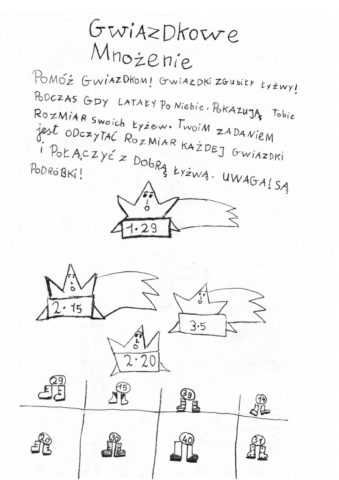 GwiAzDkowe
Mnożenie
POMÓŻ GWIAZDKOM! GWIAZDKI ZGUBIŁY ŁYŻWY!
PODCZAS GDY LATAŁY PO NIEBIE. POKAZUJĄ TOBIE
ROZMIAR SWOICH ŁYŻEW. TWOIM ZADANIEM
jest ODCZYTAĆ ROZMIAR KAŻDEJ GWIAZDKI
i POŁĄCZYĆ Z DOBRĄ ŁYŻWĄ. UWAGA! SĄ
PODRÓBKI!
1·29
2·15
3·5
2·20
29 15 39 14
20 30 40 31